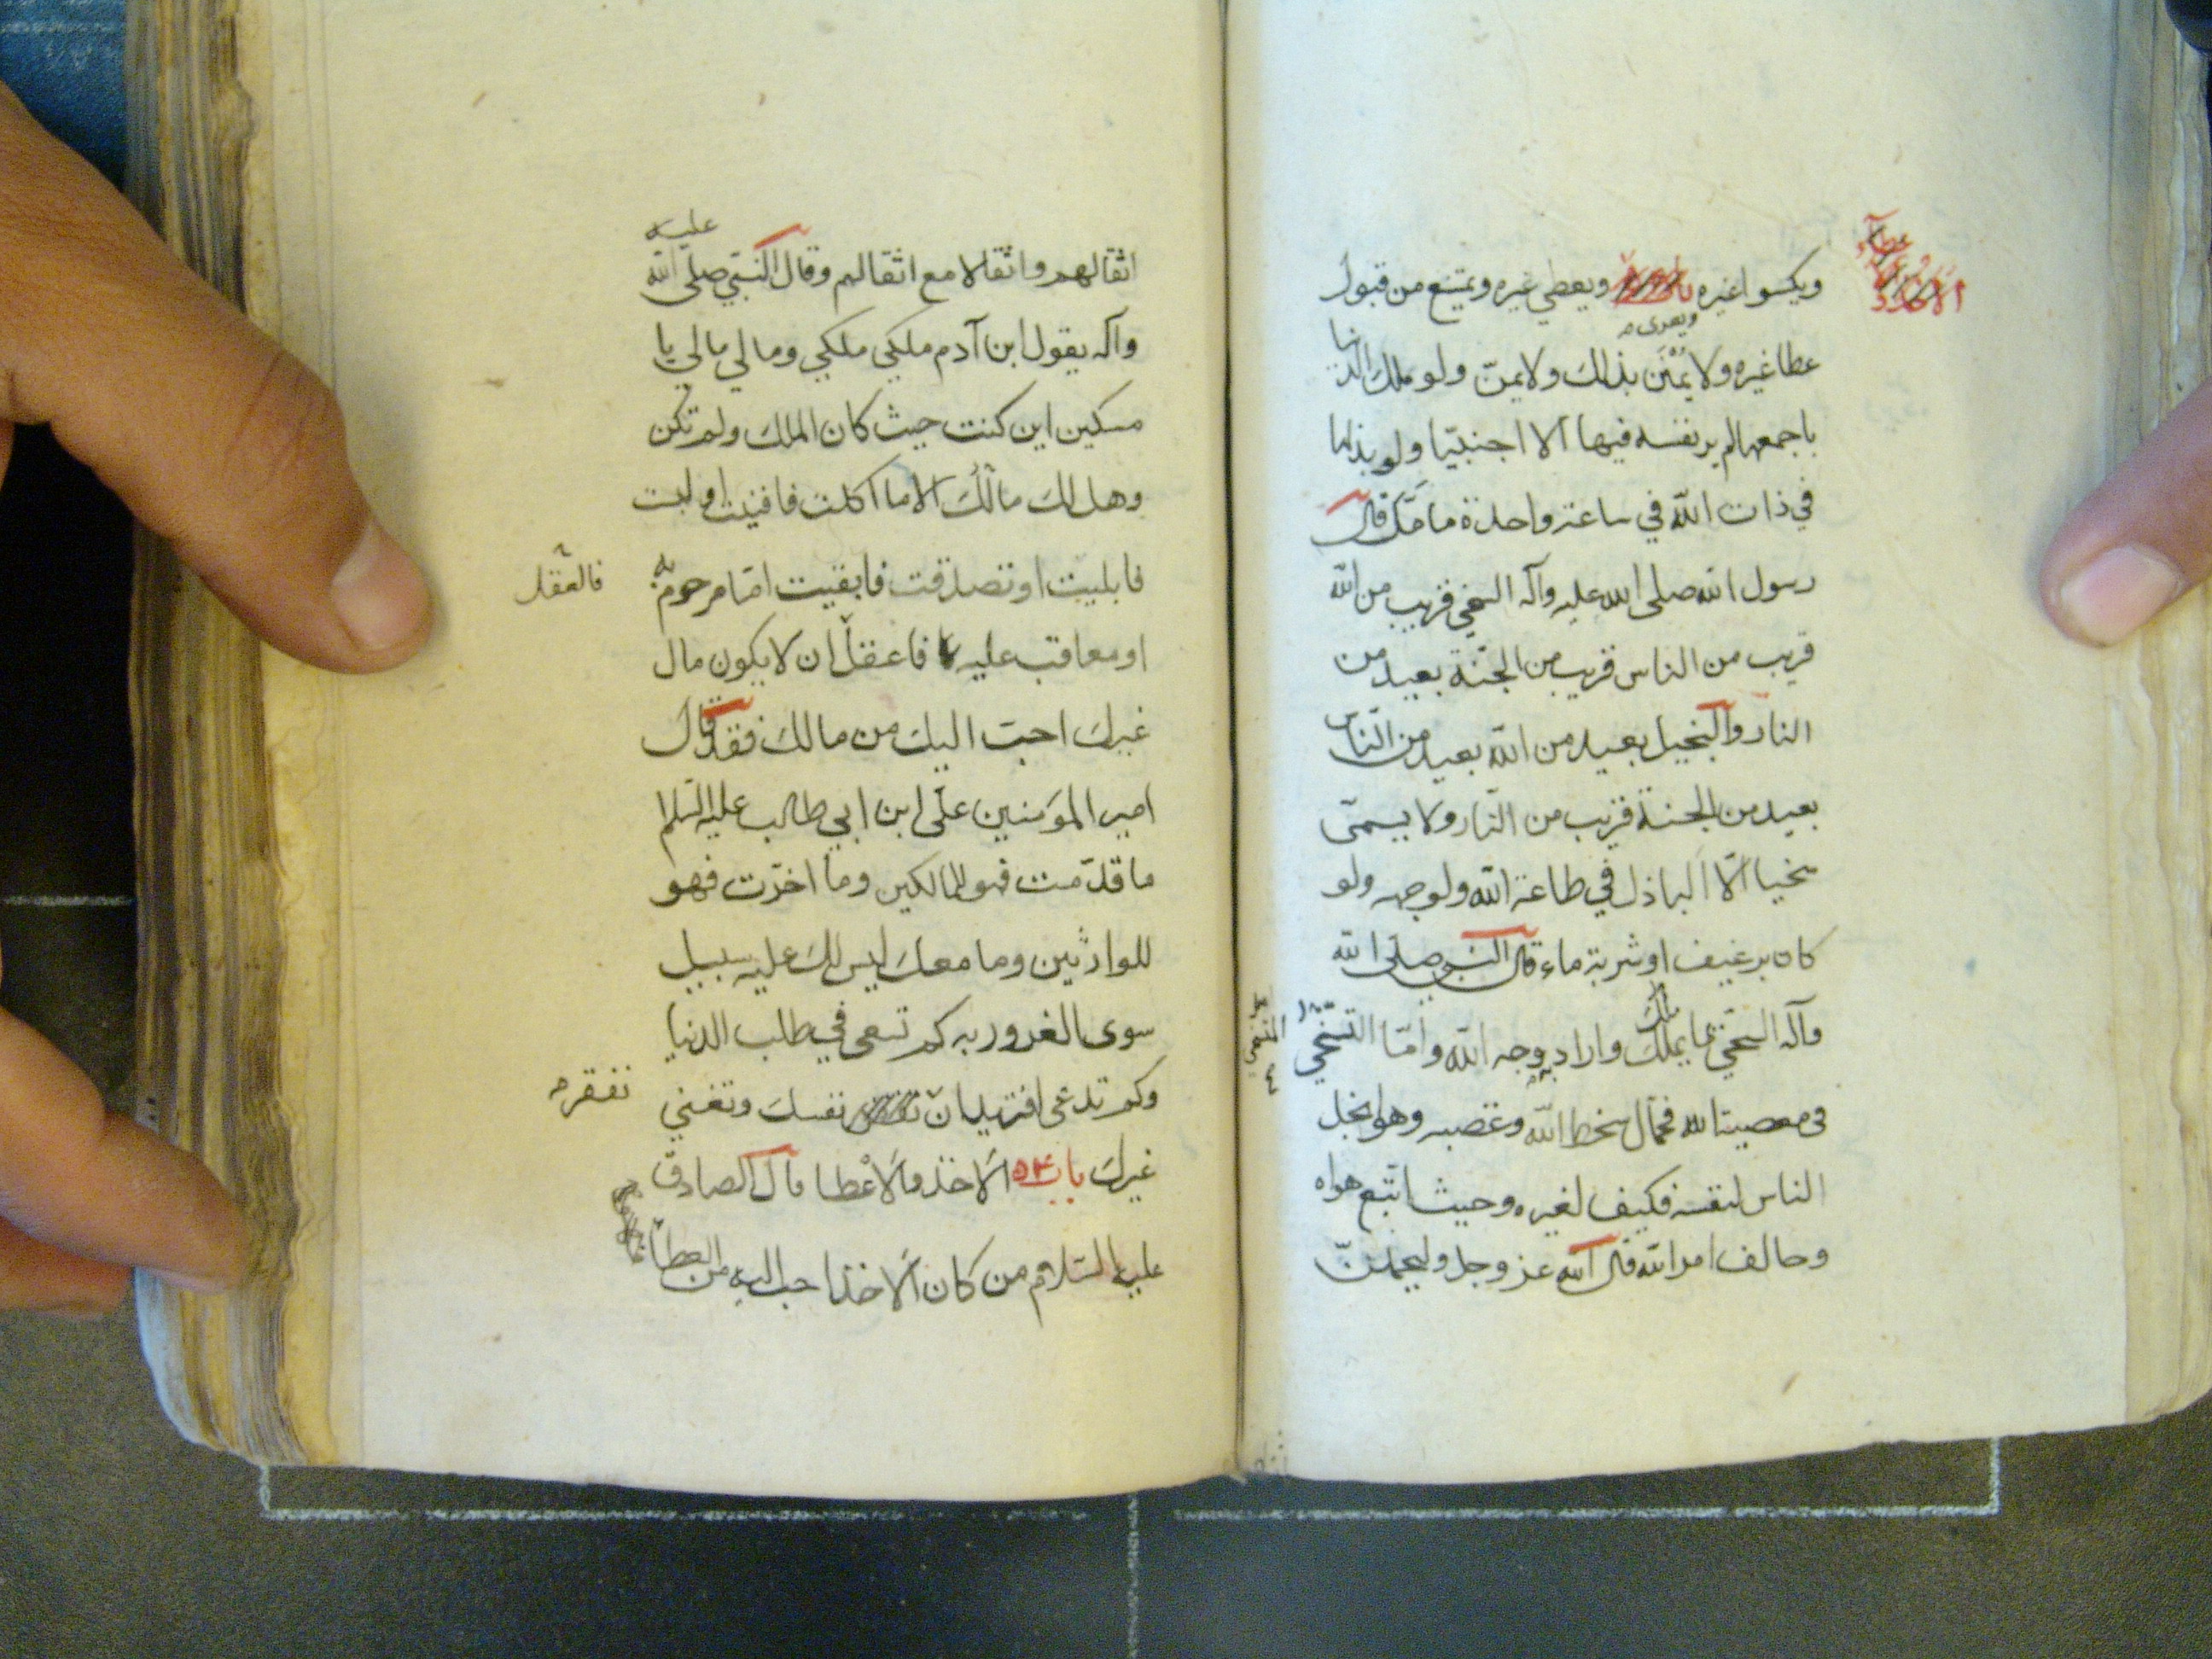 ويكسوا غيره ويعطي غيره ويمتنع من قبول
ويعرى
عطا غيره ولا يمنن بذلك ولا يمن ولو ملك الدنيا
باجمعها لم ير نفسه فيها الا اجنبيّا ولو بذلها
في ذات الله في ساعة واحدة ما ملّ قال
رسول الله صلى الله عليه وآله السخي قريب من الله
قريب من الناس قريب من الجنّة بعيد من
النار والبخيل بعيد من الله بعيد من النّاس
بعيد من الجنة قريب من النّار ولا يسمّى
سخيا الّا الباذل في طاعة الله ولوجهه ولو
كان برغيف او شربة ماء قال النبي صلى الله
وآله السخي بما يملك واراد به وجه الله وامّا المتسخّي
في معصية الله فحمال سخط الله وغضبه وهو ابخل
الناس لنفسه فكيف لغيره وحيث اتبع هواه
وخالف امر الله قال الله عز وجل وليحملنّ
عليه
اثقالهم واثقالا مع اثقالهم وقال النّبيّ صلى الله
وآله يقول ابن آدم ملكي ملكي ومالي مالي يا
مسكين اين كنت حيث كان الملك ولم تكن
وهل لك مالك الا ما اكلت فافنيت او لبست
فابليت او تصدقت فابقيت امّا مرحوم به
فالعقل
او معاقب عليه فاعقل ان لا يكون مال
غيرك احب اليك من مالك فقد قال
امير المؤمنين علّى ابن ابي طالب عليه السلام
ما قدّمت فهو للمالكين وما اخرّت فهو
للوارثين وما معك ليس لك عليه سبيل
سوى الغرور به كم تسعى في طلب الدنيا
وكم تدعى افتريد ان نفسك وتغني
تفقر
غيرك باب ٥٤ الاخذ والاعطا قال الصادق
عليه السّلام من كان الاخذ احب اليه من العطا